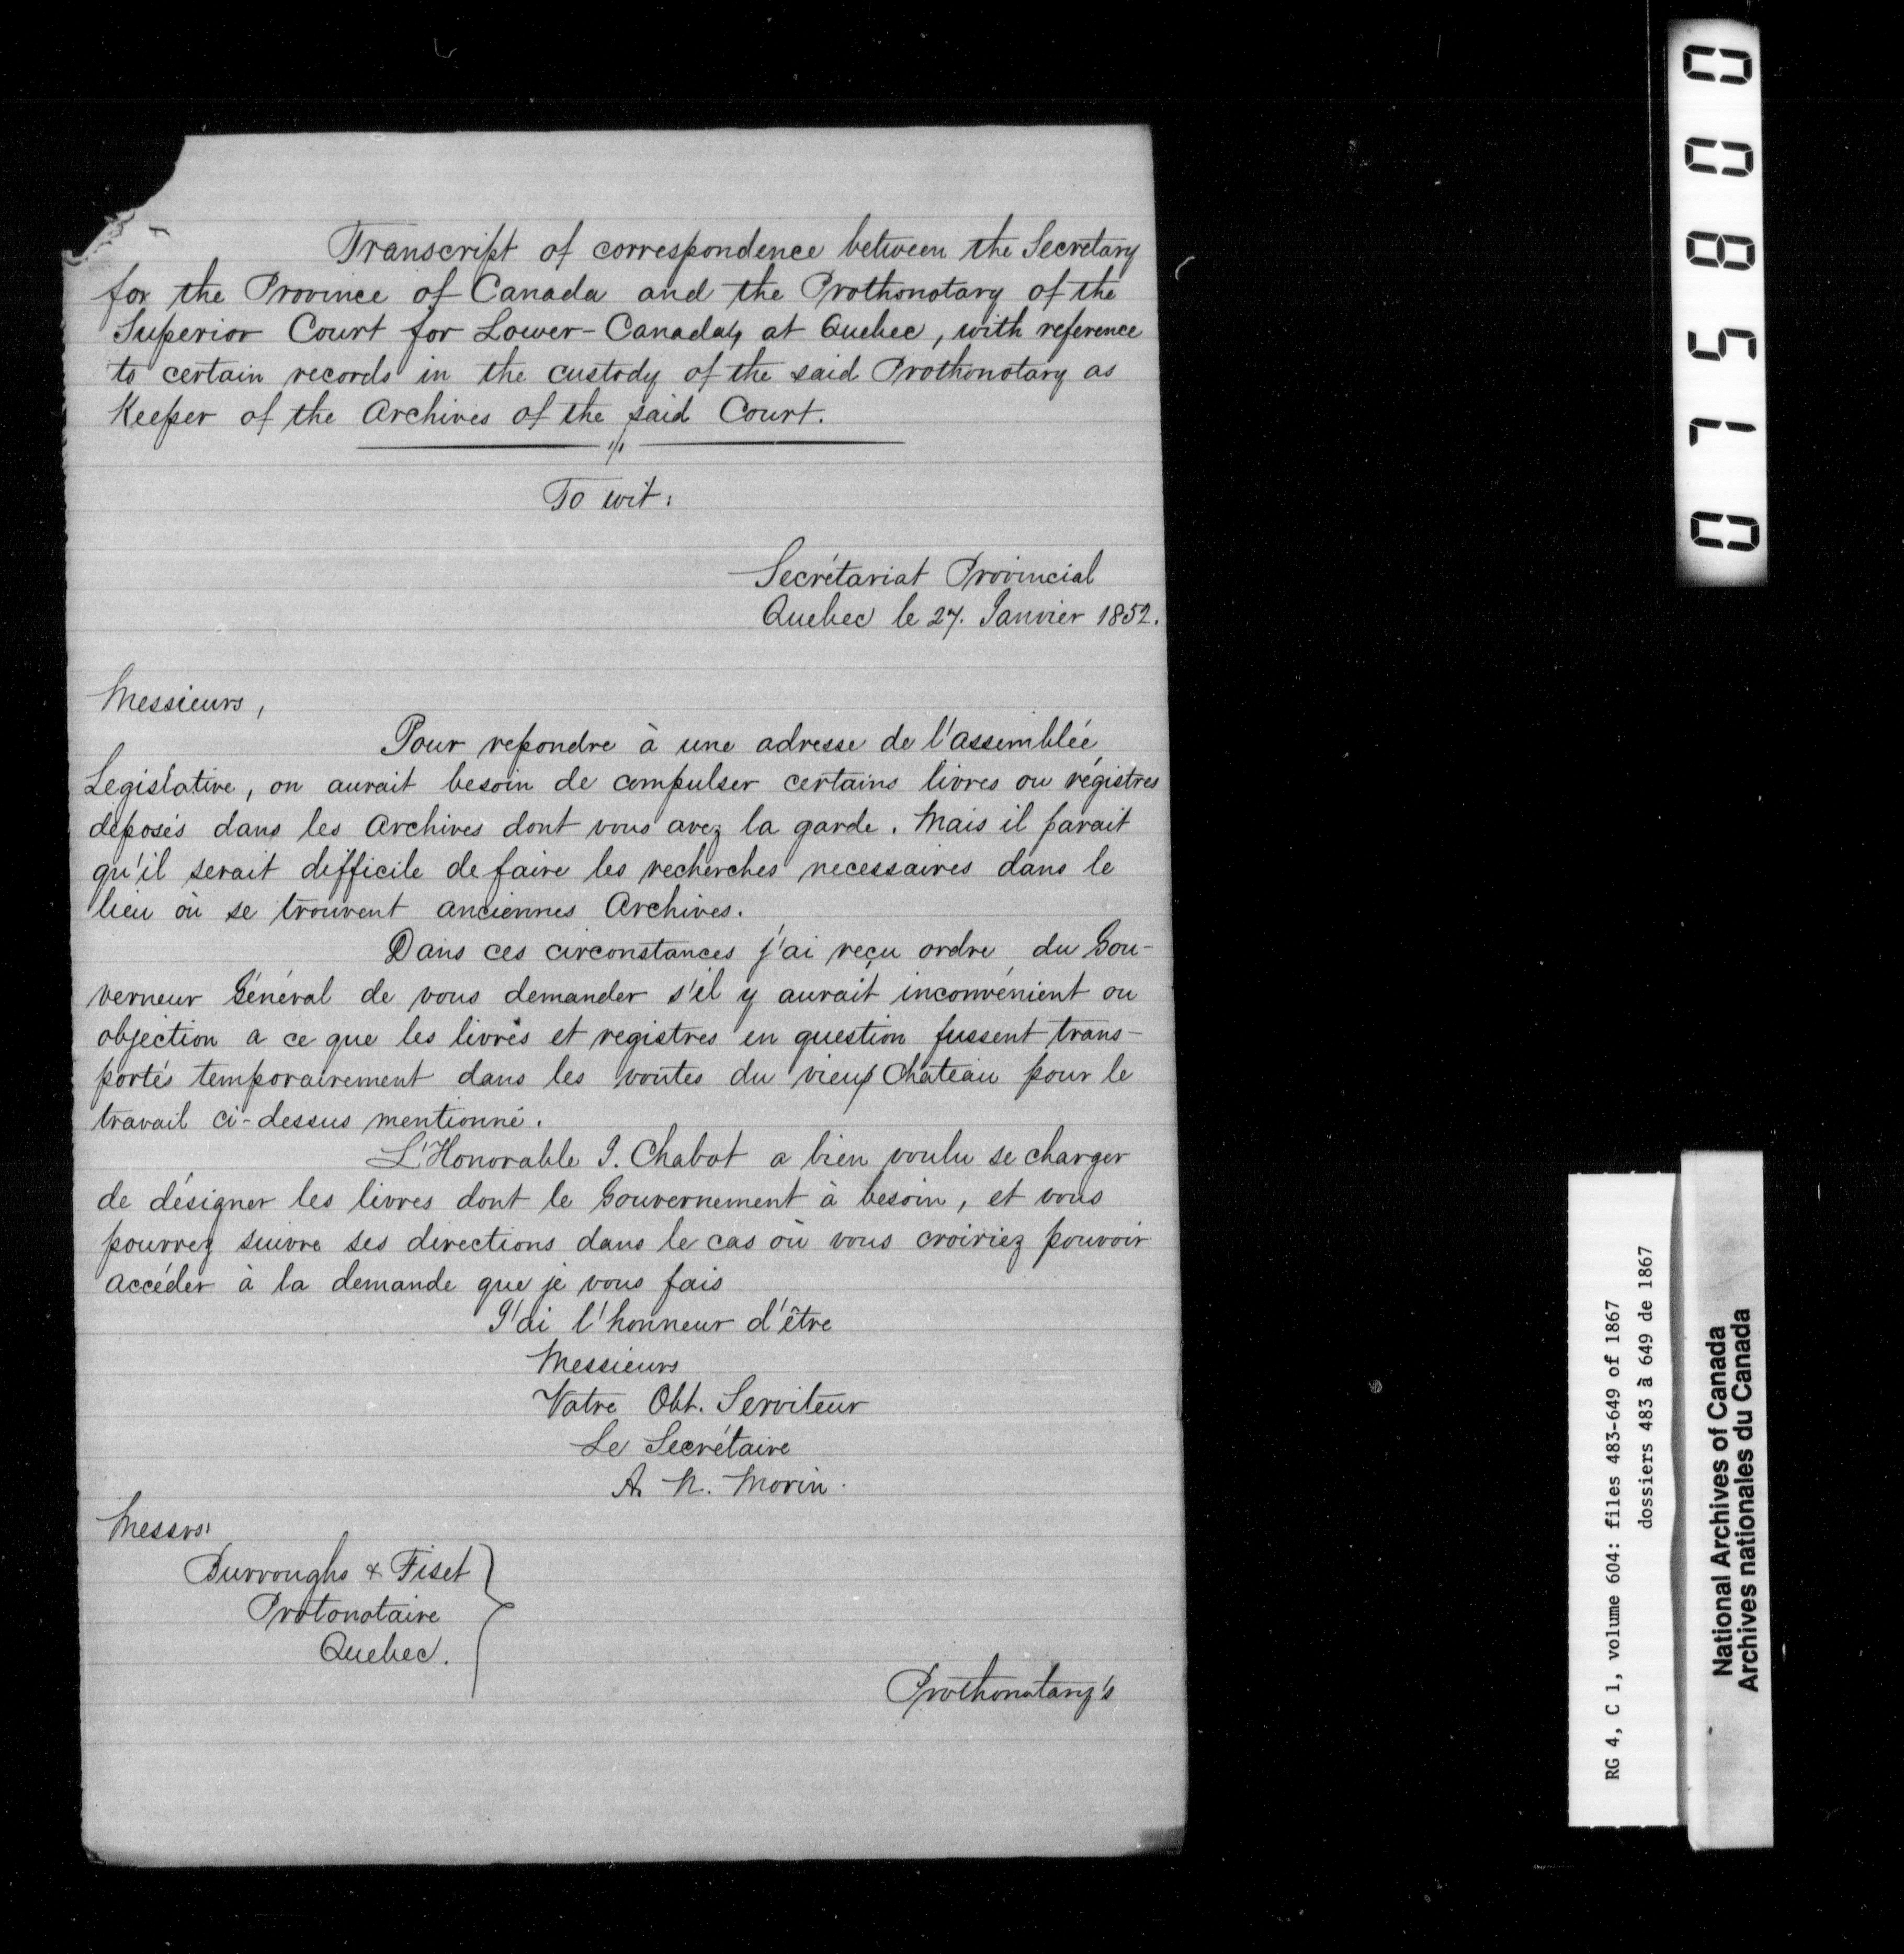 Transcript of correspondence between the Secretary
for the Province of Canada and the Prothonotary of the
Superior Court for Lower-Canada, at Quebec, with reference
to certain records in the custody of the said Prothonotary as
Keeper of the Archives of the said Court.
To wit:
Secrétariat Provincial
Quebec le 27. Janvier 1852.
Messieurs,
Pour repondre à une adresse de l'assemblée
Legislative, on aurait besoin de compulser certains livres ou régistres
déposés dans les Archives dont vous avez la garde. Mais il parait
qu'il serait difficile de faire les recherches necessaires dans le
lieu où se trouvent anciennes Archives.
Dans ces circonstances j'ai reçu ordre du Gou-
verneur Général de vous demander s'il y aurait inconvénient ou
objection a ce que les livres et registres en question fussent trans-
portés temporairement dans les voutes du vieux Chateau pour le
travail ci-dessus mentionné.
L'Honorable J. Chabot a bien voulu se charger
de désigner les livres dont le Gouvernement à besoin, et vous
pourrez suivre ses directions dans le cas où vous croiriez pouvoir
accéder à la demande que je vous fais
J'ai l'honneur d'être
Messieurs
Votre Obt. Serviteur
Le Secrétaire
A. N. Morin.
Messrs
Burroughs & Fiset
Protonotaire
Quebec.
Prothonotary's
015800
RG 4, C 1, volume 604: files 483-649 of 1867
dossiers 483 à 649 de 1867
National Archives of Canada
Archives nationales du Canada